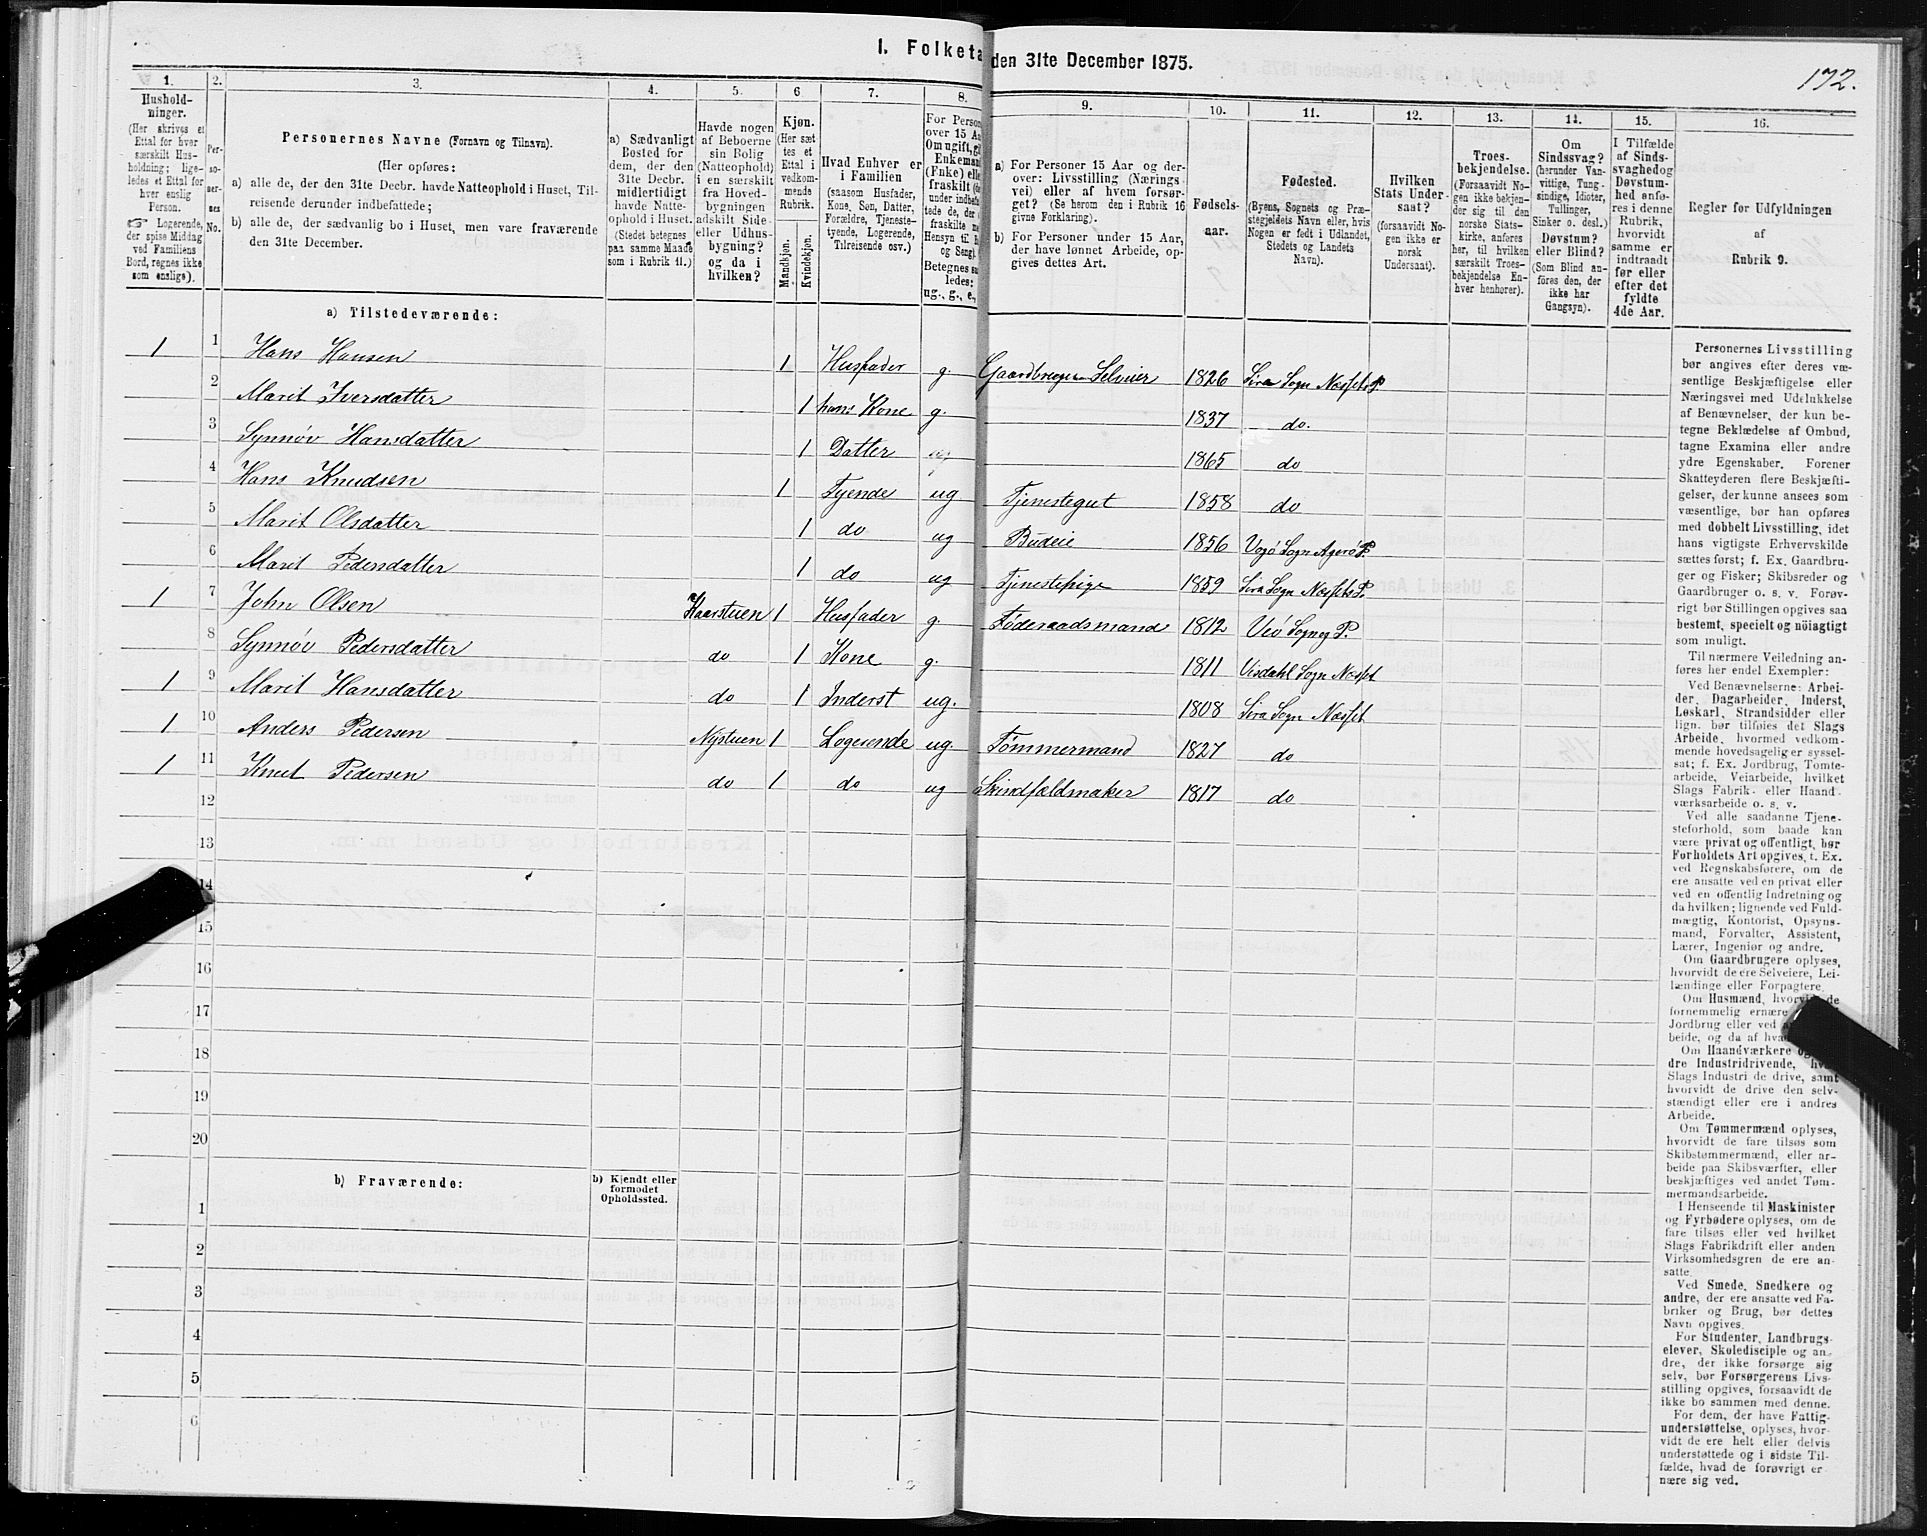 1. Folketæ den 31te December 1875.
172.
1. 2. 3. 4. 5. 6 7. 8. 9. 10. 11. 12. 13. 14. 15. 16.
Hushold-
ninger.
(Her skrives et
Ettal for hver
særskilt Hus-
holdning; lige-
ledes et Ettal for
hver enslig
Person.
☞ Logerende,
der spise Middag
ved Familiens
Bord, regnes ikke
som enslige).
Per-
so-
ner-
nes
No.
Personernes Navne (Fornavn og Tilnavn).
(Her opføres:
a) alle de, der den 31te Decbr. havde Natteophold i Huset, Til-
reisende derunder indbefattede;
b) alle de, der sædvanlig bo i Huset, men vare fraværende
den 31te December.
a) Sædvanligt
Bosted for
dem, der den
31te Decbr.
midlertidigt
havde Natte-
ophold i Huset.
(Stedet betegnes
paa samme Maade
som i Rubrik 11.)
Havde nogen
af Beboerne
sin Bolig
(Natteophold)
i en særskilt
fra Hoved-
bygningen
adskilt Side-
eller Udhus-
bygning?
og da i
hvilken?
Kjøn.
(Her sæt-
tes et
Ettal i
vedkom-
mende
Rubrik.
Mandkjøn.
Kvindekjøn.
Hvad Enhver er
i Familien
(saasom Husfader,
Kone, Søn, Datter,
Forældre, Tjeneste-
tyende, Logerende,
Tilreisende osv.)
For Person
over 15 Aa
Om ugift, gi
Enkeman
(Enke) elle
fraskilt
under indbefa
tede de, der
fraskilte
Hensyn til
og Seng).
Betegnes saa
ledes:
ug., g., e.,
a) For Personer 15 Aar og der-
over: Livsstilling (Nærings-
vei) eller af hvem forsør-
get? (Se herom den i Rubrik 16
givne Forklaring).
b) For Personer under 15 Aar,
der have lønnet Arbeide, op-
gives dettes Art.
Fødsels-
aar.
Fødested.
(Byens, Sognets og Præ-
stegjeldets Navn eller, hvis
Nogen er født i Udlandet,
Stedets og Landets
Navn).
Hvilken
Stats Under-
saat?
(forsaavidt No-
gen ikke er
norsk
Undersaat).
Troes-
bekjendelse.
(Forsaavidt No-
gen ikke bekjen-
der sig til den
norske Stats-
kirke, anføres
her, til hvilken
særskilt Troes-
bekjendelse En-
hver henhører).
Om
Sindssvag?
(herunder Van-
vittige, Tung-
sindige, Idioter,
Tullinger,
Sinker o. desl.)
Døvstum?
eller Blind?
(Som Blind an-
føres den, der
ikke har
Gangsyn).
I Tilfælde
af Sinds-
svaghed og
Døvstum-
hed anfø-
res i denne
Rubrik,
hvorvidt
samme er
indtraadt
før eller
efter det
fyldte
4de Aar.
Regler for Udfyldningen
af
Rubrik 9.
a) Tilstedeværende:
1 1 Hans Hansen 1 Husfader g Gaardbruger Selveier 1826 Sira Sogn Næssets P
2 Marit Iversdatter 1 hans Kone g. 1837 do.
3 Synnøv Hansdatter 1 Datter ug 1865 do
4 Hans Knudsen 1 Tyende ug Tjenestegut 1858 do
5 Marit Olsdatter 1 do ug Budeie 1856 Vogø Sogn Agerø P.
6 Marit Pedersdatter 1 do ug Tjenestepige 1859 Sira Sogn Næssets P.
1 7 John Olsen Kaarstuen 1 Husfader g. Føderaadsmand 1812 Veø Sogn og P.
8 Synnøv Pedersdatter do 1 Kone g. 1811 Visdahl Sogn Næsset
1 9 Marit Hansdatter do 1 Inderst ug. 1808 Sira Sogn Næsset
1 10 Anders Pedersen Nystuen 1 Logerende ug. Tømmermand 1827 do
1 11 Knut Pedersen do 1 do ug Skindfældmaker 1817 do
12
13
14
15
16
17
18
19
20
b) Fraværende:
b) Kjendt eller
formodet
Opholdssted.
1
2
3
4
5
6
Personernes Livsstilling
bør angives efter deres væ-
sentlige Beskjæftigelse eller
Næringsvei med Udelukkelse
af Benævnelser, der kun be-
tegne Beklædelse af Ombud,
tagne Examina eller andre
ydre Egenskaber. Forener
Skatteyderen flere Beskjæfti-
gelser, der kunne ansees som
væsentlige, bør han opføres
med dobbelt Livsstilling, idet
hans vigtigste Erhvervskilde
sættes først; f. Ex. Gaardbru-
ger og Fisker; Skibsreder og
Gaardbruger o. s. v. Forøv-
rigt bør Stillingen opgives saa
bestemt, specielt og nöiagtigt
som muligt.
Til nærmere Veiledning an-
føres her endel Exempler:
Ved Benævnelserne: Arbei-
der, Dagarbeider, Inderst,
Løskarl, Strandsidder eller
lign. bør tilføies det Slags
Arbeide, hvormed vedkom-
mende hovedsagelig er syssel-
sat; f. Ex. Jordbrug, Tomte-
arbeide, Veiarbeide, hvilket
Slags Fabrik- eller Haand-
værksarbeide o. s. v.
Ved alle saadanne Tjene-
steforhold, som baade kan
være privat og offentligt, bør
Forholdets Art opgives, t. Ex.
ved Regnskabsførere, om de
ere ansatte ved en privat eller
ved en offentlig Indretning og
da hvilken; lignende ved Fuld-
mægtig, Kontorist, Opsyns-
mand, Forvalter, Assistent,
Lærer, Ingeniør og andre.
Om Gaardbrugere oplyses,
hvorvidt de ere Selveiere, Lei-
lændinge eller Forpagtere.
Om Husmænd, hvorvi de
fornemmelig ernære
Jordbrug eller ved a
beide, og da af hva
Om Haandværkere og
dre Industridrivende, hv
Slags Industri de drive, samt
hvorvidt de drive den selv-
stændigt eller ere i andres
Arbeide.
Om Tømmermænd oplyses,
hvorvidt de fare tilsøs som
Skibstømmermænd, eller ar-
beide paa Skibsværfter, eller
beskjæftiges ved andet Tøm-
mermandsarbeide.
I Henseende til Maskinister
og Fyrbødere oplyses, om de
fare tilsøs eller ved hvilket
Slags Fabrikdrift eller anden
Virksomhedsgren de ere an-
satte.
Ved Smede, Snedkere og
andre, der ere ansatte ved Fa-
briker og Brug, bør dettes
Navn opgives.
For Studenter, Landbrugs-
elever, Skoledisciple og an-
dre, der ikke forsørge sig
selv, bør Forsørgerens Livs-
stilling opgives, forsaavidt de
ikke bo sammen med denne.
For dem, der have Fattig-
understøttelse, oplyses, hvor-
vidt de ere helt eller delvis
understøttede og i sidste Til-
fælde, hvad de forøvrigt er
nære sig ved.